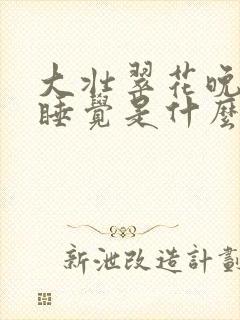 大壮翠花晚
睡覺是什麼
新泄改造計劃